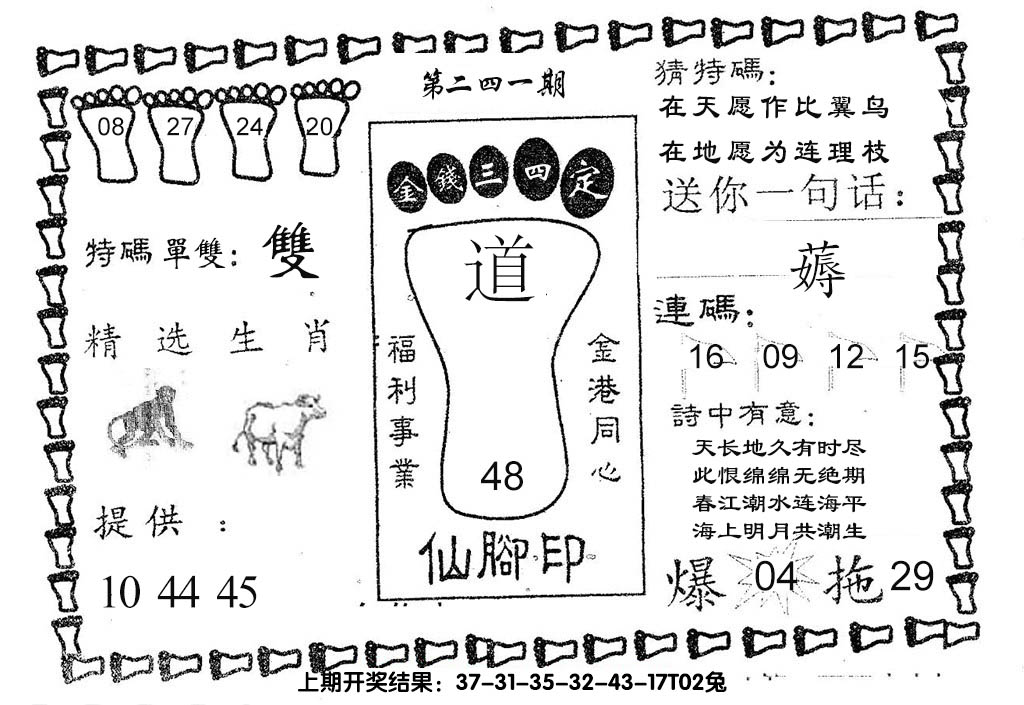 第二四一期
08 27 24 20
特碼單雙：雙
精选生肖
提供：
10 44 45
金錢三四定
道
福利事業
金港同心
48
仙腳印
猜特碼：
在天愿作比翼鸟
在地愿为连理枝
送你一句话：
薅
連碼：
16 09 12 15
詩中有意：
天长地久有时尽
此恨绵绵无绝期
春江潮水连海平
海上明月共潮生
爆 04 拖 29
上期开奖结果：37-31-35-32-43-17T02兔